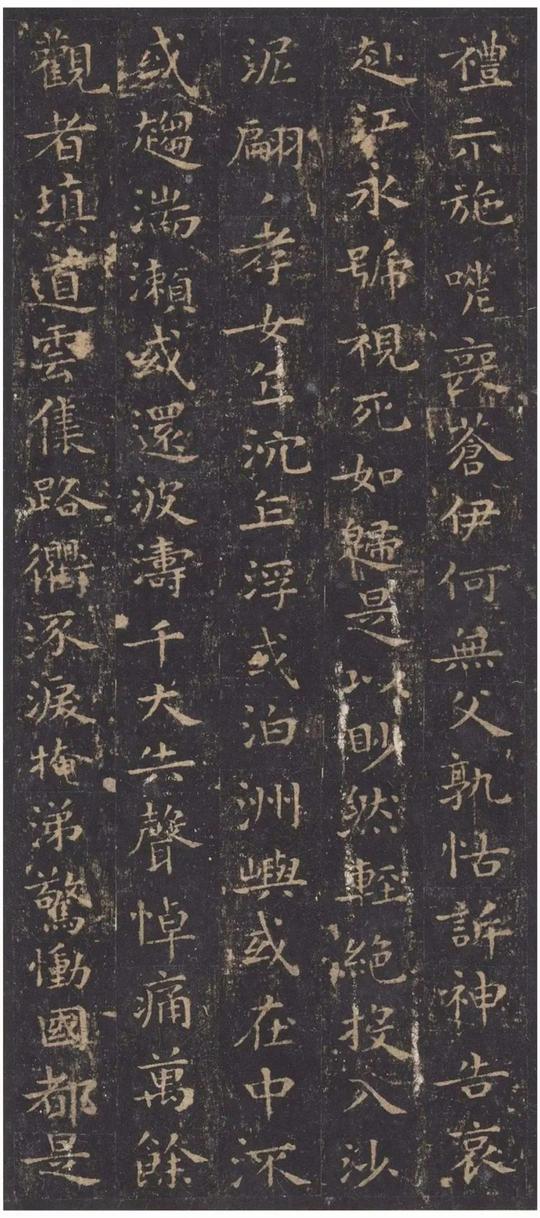 禮示施咣喪蒼伊何無父孰怙訴神告哀
赴江永號視死如歸是以眇然輕絕投入沙
泥翩〻孝女乍沉乍浮或泊洲嶼或在中流
或趨湍瀨或還波濤千夫失聲悼痛萬餘
觀者填道雲集路衢泳淚掩涕驚慟國都是